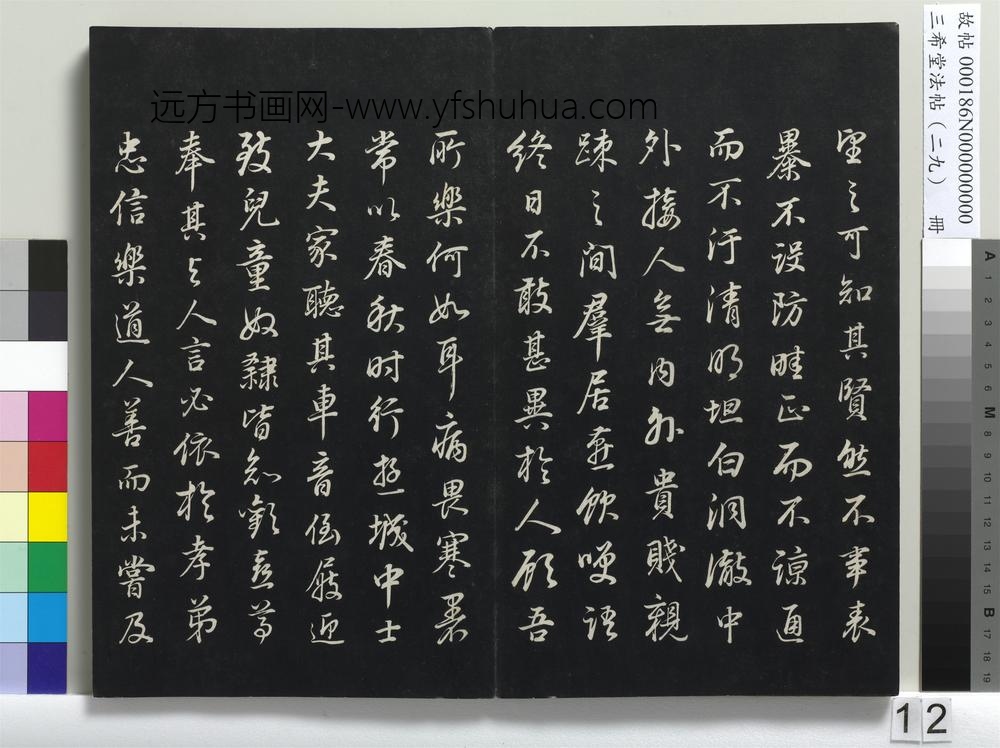 望之可知其賢然不事表
暴不設防畦正而不諒通
而不汙清明坦白洞澈中
外接人無內外貴賤親
踈之間羣居燕飲笑語
終日不敢甚異於人顧吾
所樂何如耳病畏寒暑
常以春秋時行遊城中士
大夫家聽其車音倒屐迎
致兒童奴隸皆知歡喜尊
奉其與人言必依於孝弟
忠信樂道人善而未嘗及
远方书画网-www.yfshuhua.com
故帖 000186N000000000
三希堂法帖（二九） 冊
A 1 2 3 4 5 6 M 8 9 10 11 12 13 14 15 B 17 18 19
12